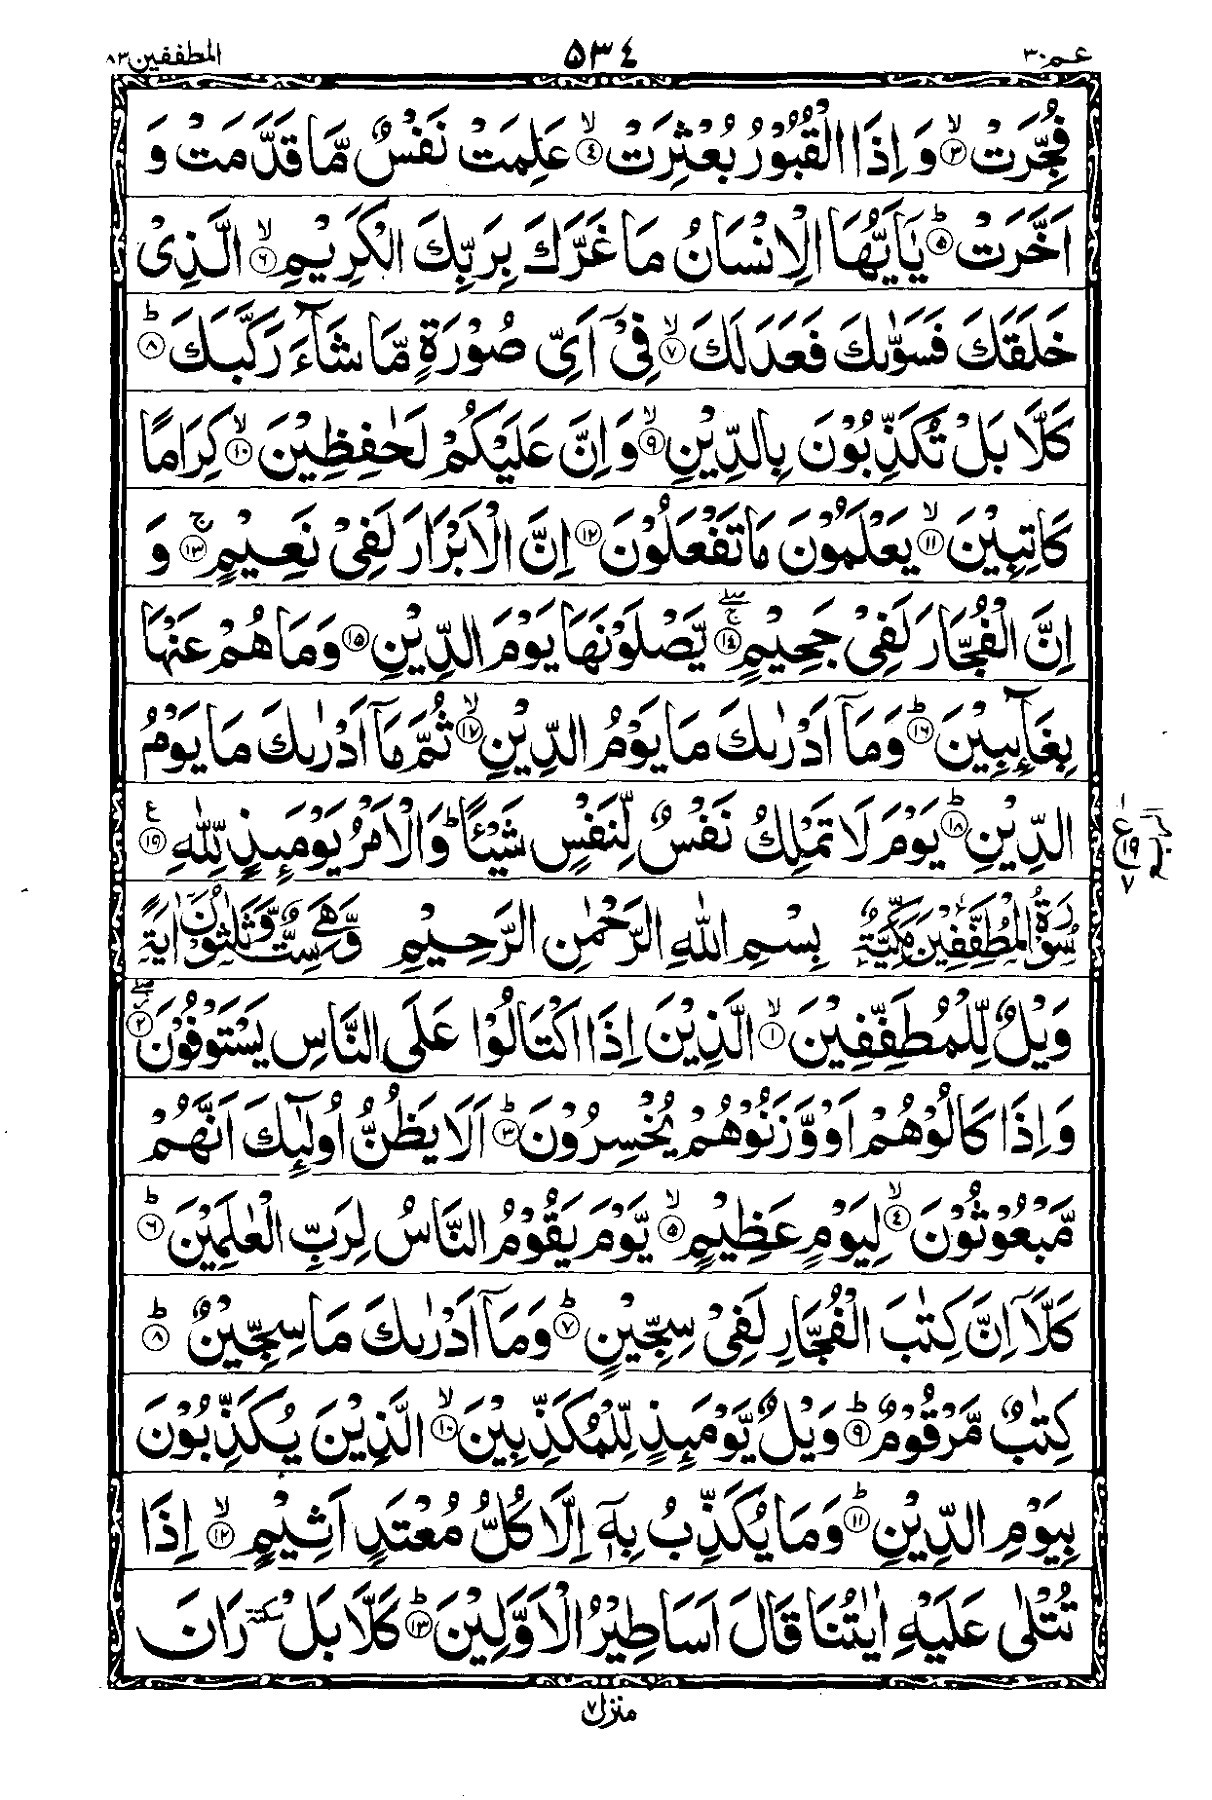 المطففين٨٣ ٥٣٤ عـم٣٠
فُجِّرَتۡ ۙ‏﴿۳﴾ وَاِذَا الۡقُبُوۡرُ بُعۡثِرَتۡ ۙ‏﴿۴﴾ عَلِمَتۡ نَفۡسٌ مَّا قَدَّمَتۡ وَ
اَخَّرَتۡ ؕ‏﴿۵﴾ يٰۤاَيُّهَا الۡاِنۡسَانُ مَا غَرَّكَ بِرَبِّكَ الۡكَرِيۡمِ ۙ‏﴿۶﴾ الَّذِىۡ
خَلَقَكَ فَسَوّٰٮكَ فَعَدَلَكَ ۙ‏﴿۷﴾ فِىۡۤ اَىِّ صُوۡرَةٍ مَّا شَآءَ رَكَّبَكَ ؕ‏﴿۸﴾
كَلَّا بَلۡ تُكَذِّبُوۡنَ بِالدِّيۡنِ ۙ‏﴿۹﴾ وَاِنَّ عَلَيۡكُمۡ لَحٰـفِظِيۡنَ ۙ‏﴿۱۰﴾ كِرَامًا
كَاتِبِيۡنَ ۙ‏﴿۱۱﴾ يَعۡلَمُوۡنَ مَا تَفۡعَلُوۡنَ‏﴿۱۲﴾ اِنَّ الۡاَبۡرَارَ لَفِىۡ نَعِيۡمٍ ۚ‏﴿۱۳﴾ وَ
اِنَّ الۡفُجَّارَ لَفِىۡ جَحِيۡمٍ ۖۚ‏﴿۱۴﴾ يَّصۡلَوۡنَهَا يَوۡمَ الدِّيۡنِ‏﴿۱۵﴾ وَمَا هُمۡ عَنۡهَا
بِغَآٮِٕبِيۡنَ ؕ‏﴿۱۶﴾ وَمَاۤ اَدۡرٰٮكَ مَا يَوۡمُ الدِّيۡنِ ۙ‏﴿۱۷﴾ ثُمَّ مَاۤ اَدۡرٰٮكَ مَا يَوۡمُ
الدِّيۡنِ ؕ‏﴿۱۸﴾ يَوۡمَ لَا تَمۡلِكُ نَفۡسٌ لِّنَفۡسٍ شَيۡـًٔـا ؕ وَالۡاَمۡرُ يَوۡمَٮِٕذٍ لِّلّٰهِ‏﴿۱۹﴾ ع
سُوۡرَةُ الۡمُطَفِّفِيۡنَ مَكِّيَّةٌ بِسۡمِ اللهِ الرَّحۡمٰنِ الرَّحِيۡمِ وَّهِىَ سِتٌّ وَّثَلٰثُوۡنَ اٰيَةً
وَيۡلٌ لِّلۡمُطَفِّفِيۡنَ ۙ‏﴿۱﴾ الَّذِيۡنَ اِذَا اكۡتَالُوۡا عَلَى النَّاسِ يَسۡتَوۡفُوۡنَ ۖ‏﴿۲﴾
وَاِذَا كَالُوۡهُمۡ اَوْ وَّزَنُوۡهُمۡ يُخۡسِرُوۡنَ ؕ‏﴿۳﴾ اَلَا يَظُنُّ اُولٰٓٮِٕكَ اَنَّهُمۡ
مَّبۡعُوۡثُوۡنَ ۙ‏﴿۴﴾ لِيَوۡمٍ عَظِيۡمٍ ۙ‏﴿۵﴾ يَّوۡمَ يَقُوۡمُ النَّاسُ لِرَبِّ الۡعٰلَمِيۡنَ ؕ‏﴿۶﴾
كَلَّاۤ اِنَّ كِتٰبَ الۡفُجَّارِ لَفِىۡ سِجِّيۡنٍ ؕ‏﴿۷﴾ وَمَاۤ اَدۡرٰٮكَ مَا سِجِّيۡنٌ ؕ‏﴿۸﴾
كِتٰبٌ مَّرۡقُوۡمٌ ؕ‏﴿۹﴾ وَيۡلٌ يَّوۡمَٮِٕذٍ لِّلۡمُكَذِّبِيۡنَ ۙ‏﴿۱۰﴾ الَّذِيۡنَ يُكَذِّبُوۡنَ
بِيَوۡمِ الدِّيۡنِ ؕ‏﴿۱۱﴾ وَمَا يُكَذِّبُ بِهٖۤ اِلَّا كُلُّ مُعۡتَدٍ اَثِيۡمٍ ۙ‏﴿۱۲﴾ اِذَا
تُتۡلٰى عَلَيۡهِ اٰيٰتُنَا قَالَ اَسَاطِيۡرُ الۡاَوَّلِيۡنَ ؕ‏﴿۱۳﴾ كَلَّا بَلۡ سكتة رَانَ
منزل٧